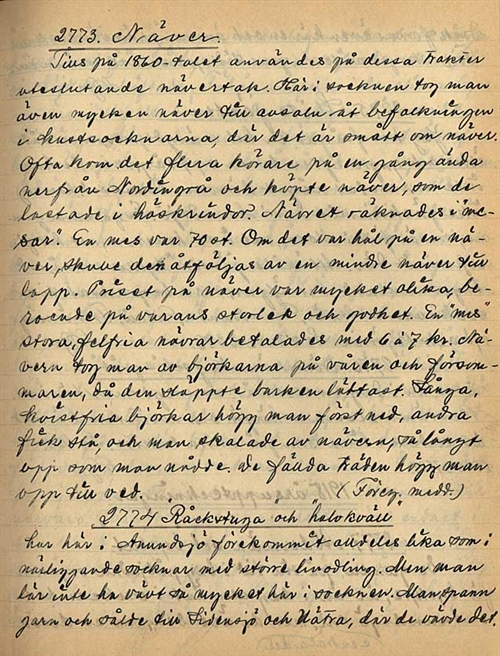 2773. Näver.
Tills på 1860-talet användes på dessa trakter
uteslutande nävertak. Här i socknen tog man
även mycken näver till avsalu åt befolkningen
i kustsocknarna, där det är smått om näver.
Ofta kom det flera körare på en gång ända
nerfrån Nordingrå och köpte näver, som de
lastade i höskrindor. Nävret räknades i "me-
sar". En mes var 70 st. Om det var hål på en nä-
ver, skulle den åtföljas av en mindre näver till
lapp. Priset på näver var mycket olika, be-
roende på varans storlek och godhet. En "mes"
stora, felfria nävrar betalades med 6 à 7 kr. Nä-
vern tog man av björkarna på våren och försom-
maren, då den släppte barken lättast. Långa,
kvistfria björkar högg man först ned, andra
fick stå, och man skalade av nävern, så långt
opp som man nådde. De fällda träden högg man
opp till ved. (Föreg. medd.)
2774 Råckstuga och "halvkväll"
har här i Anundsjö förekommit alldeles lika som i
närliggande socknar med större linodling. Men man
lär inte ha vävt så mycket här i socknen. Man spann
garn och sålde till Sidensjö och Nätra, där de vävde det.